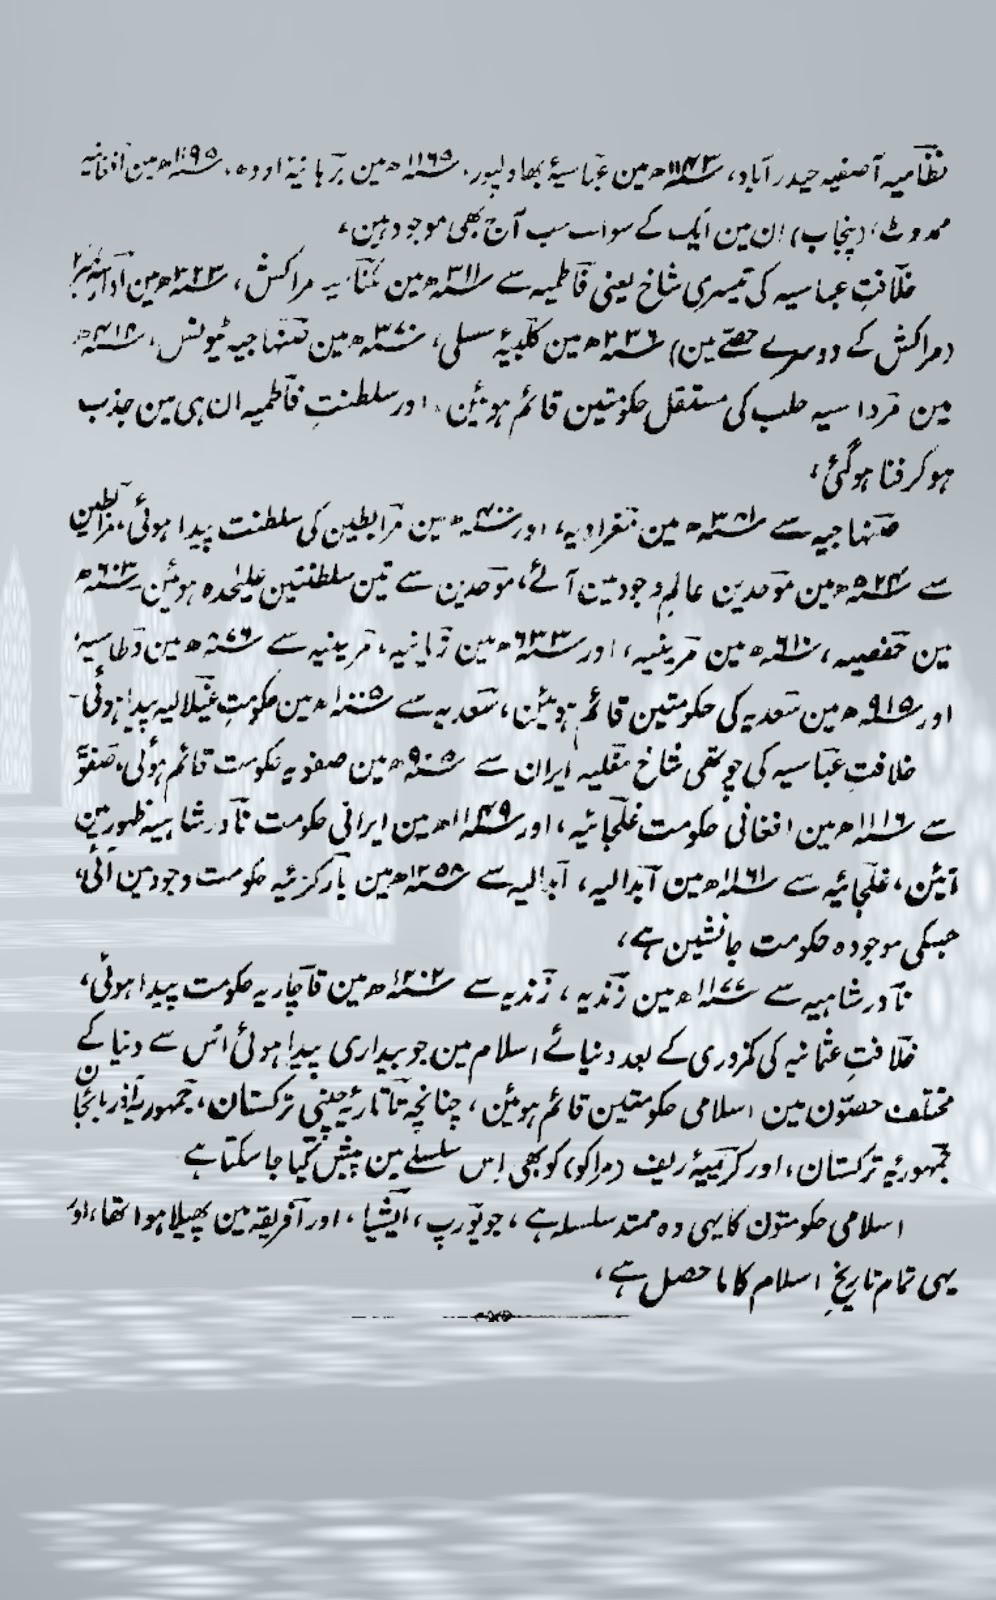 نظامیہ آصفیہ حیدر آباد، ۱۱۴۳ھ مین عباسیۂ بھاولپور، ۱۱۶۵ھ مین برہانیۂ اودہ، ۱۱۹۵ھ مین افغانیہ
ممدوٹ، (پنجاب) ان مین ایک کے سوا سب آج بھی موجود ہین،
خلافتِ عباسیہ کی تیسری شاخ یعنی فاطمیہ سے ۳۱۱ھ مین مراکش، ۳۲۳ھ مین
(مراکش کے دوسرے حصے مین) ۳۳۶ھ مین کلبیۂ سسلی، ۳۷۰ھ مین صنہاجیہ ٹیونس، ۴۱۴ھ
مین مرداسیہ حلب کی مستقل حکومتین قائم ہوئین، اور سلطنتِ فاطمیہ ان ہی مین جذب
ہو کر فنا ہو گئی،
صنہاجیہ سے ۳۸۱ھ مین اور ۴۰۰ھ مین مرابطین کی سلطنت پیدا ہوئی، مرابطین
سے ۵۲۴ھ مین موحدین عالمِ وجود مین آئے، موحدین سے تین سلطنتین علیحدہ ہوئین ۶۰۳ھ
مین حفصیہ، ۶۱۰ھ مین مرینیہ، اور ۶۳۳ھ مین زیانیہ، مرینیہ سے ۸۷۶ھ مین وطاسیہ،
اور ۹۱۵ھ مین سعدیہ کی حکومتین قائم ہوئین، سعدیہ سے ۱۰۰۵ھ مین حکومتِ فیلالیہ پیدا ہوئی-
خلافتِ عباسیہ کی چوتھی شاخ مغلیہ ایران سے ۹۰۵ھ مین صفویہ حکومت قائم ہوئی، صفویہ
سے ۱۱۱۶ھ مین افغانی حکومت غلجائیہ، اور ۱۱۴۹ھ مین ایرانی حکومت نادر شاہیہ ظہور مین
آئین، غلجائیہ سے ۱۱۶۱ھ مین ابدالیہ، ابدالیہ سے ۱۲۵۸ھ مین بارکزئیہ حکومت وجود مین آئی،
جسکی موجودہ حکومت جانشین ہے،
نادر شاہیہ سے ۱۱۷۷ھ مین زندیہ، زندیہ سے ۱۲۰۲ھ مین قاچاریہ حکومت پیدا ہوئی،
خلافتِ عثمانیہ کی کمزوری کے بعد دنیائے اسلام مین جو بیداری پیدا ہوئی اُس سے دنیا کے
مختلف حصّون مین اسلامی حکومتین قائم ہوئین، چنانچہ تاتاریۂ چینی ترکستان، جمہوریۂ آذربائجان
جمہوریۂ ترکستان، اور کریمیۂ ریف (مراکو) کو بھی اِس سلسلے مین پیش کیا جا سکتا ہے
اسلامی حکومتون کا یہی وہ ممتد سلسلہ ہے، جو یورپ، ایشیا، اور افریقہ مین پھیلا ہوا تھا، اور
یہی تمام تاریخِ اسلام کا ماحصل ہے،